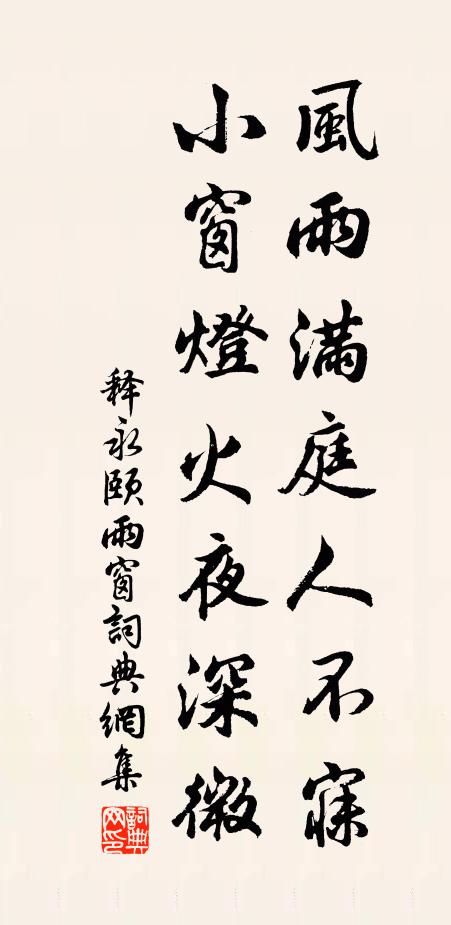 風雨滿庭人不寐
小窗燈火夜深微
释永頤雨窗詞典網集
詞典網印